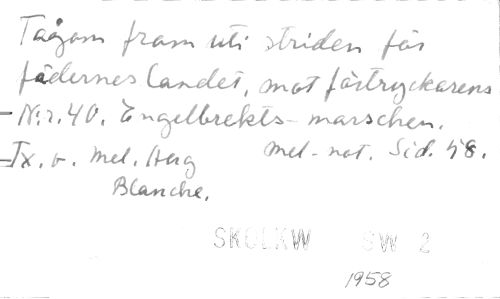 Tågom fram uti striden för
fäderneslandet, mot förtryckarens
- Nr. 40. Engelbrekts-marschen.
- Tx. o. mel. Aug mel-not. Sid. 48.
Blanche.
SKOLKW SW 2
1958